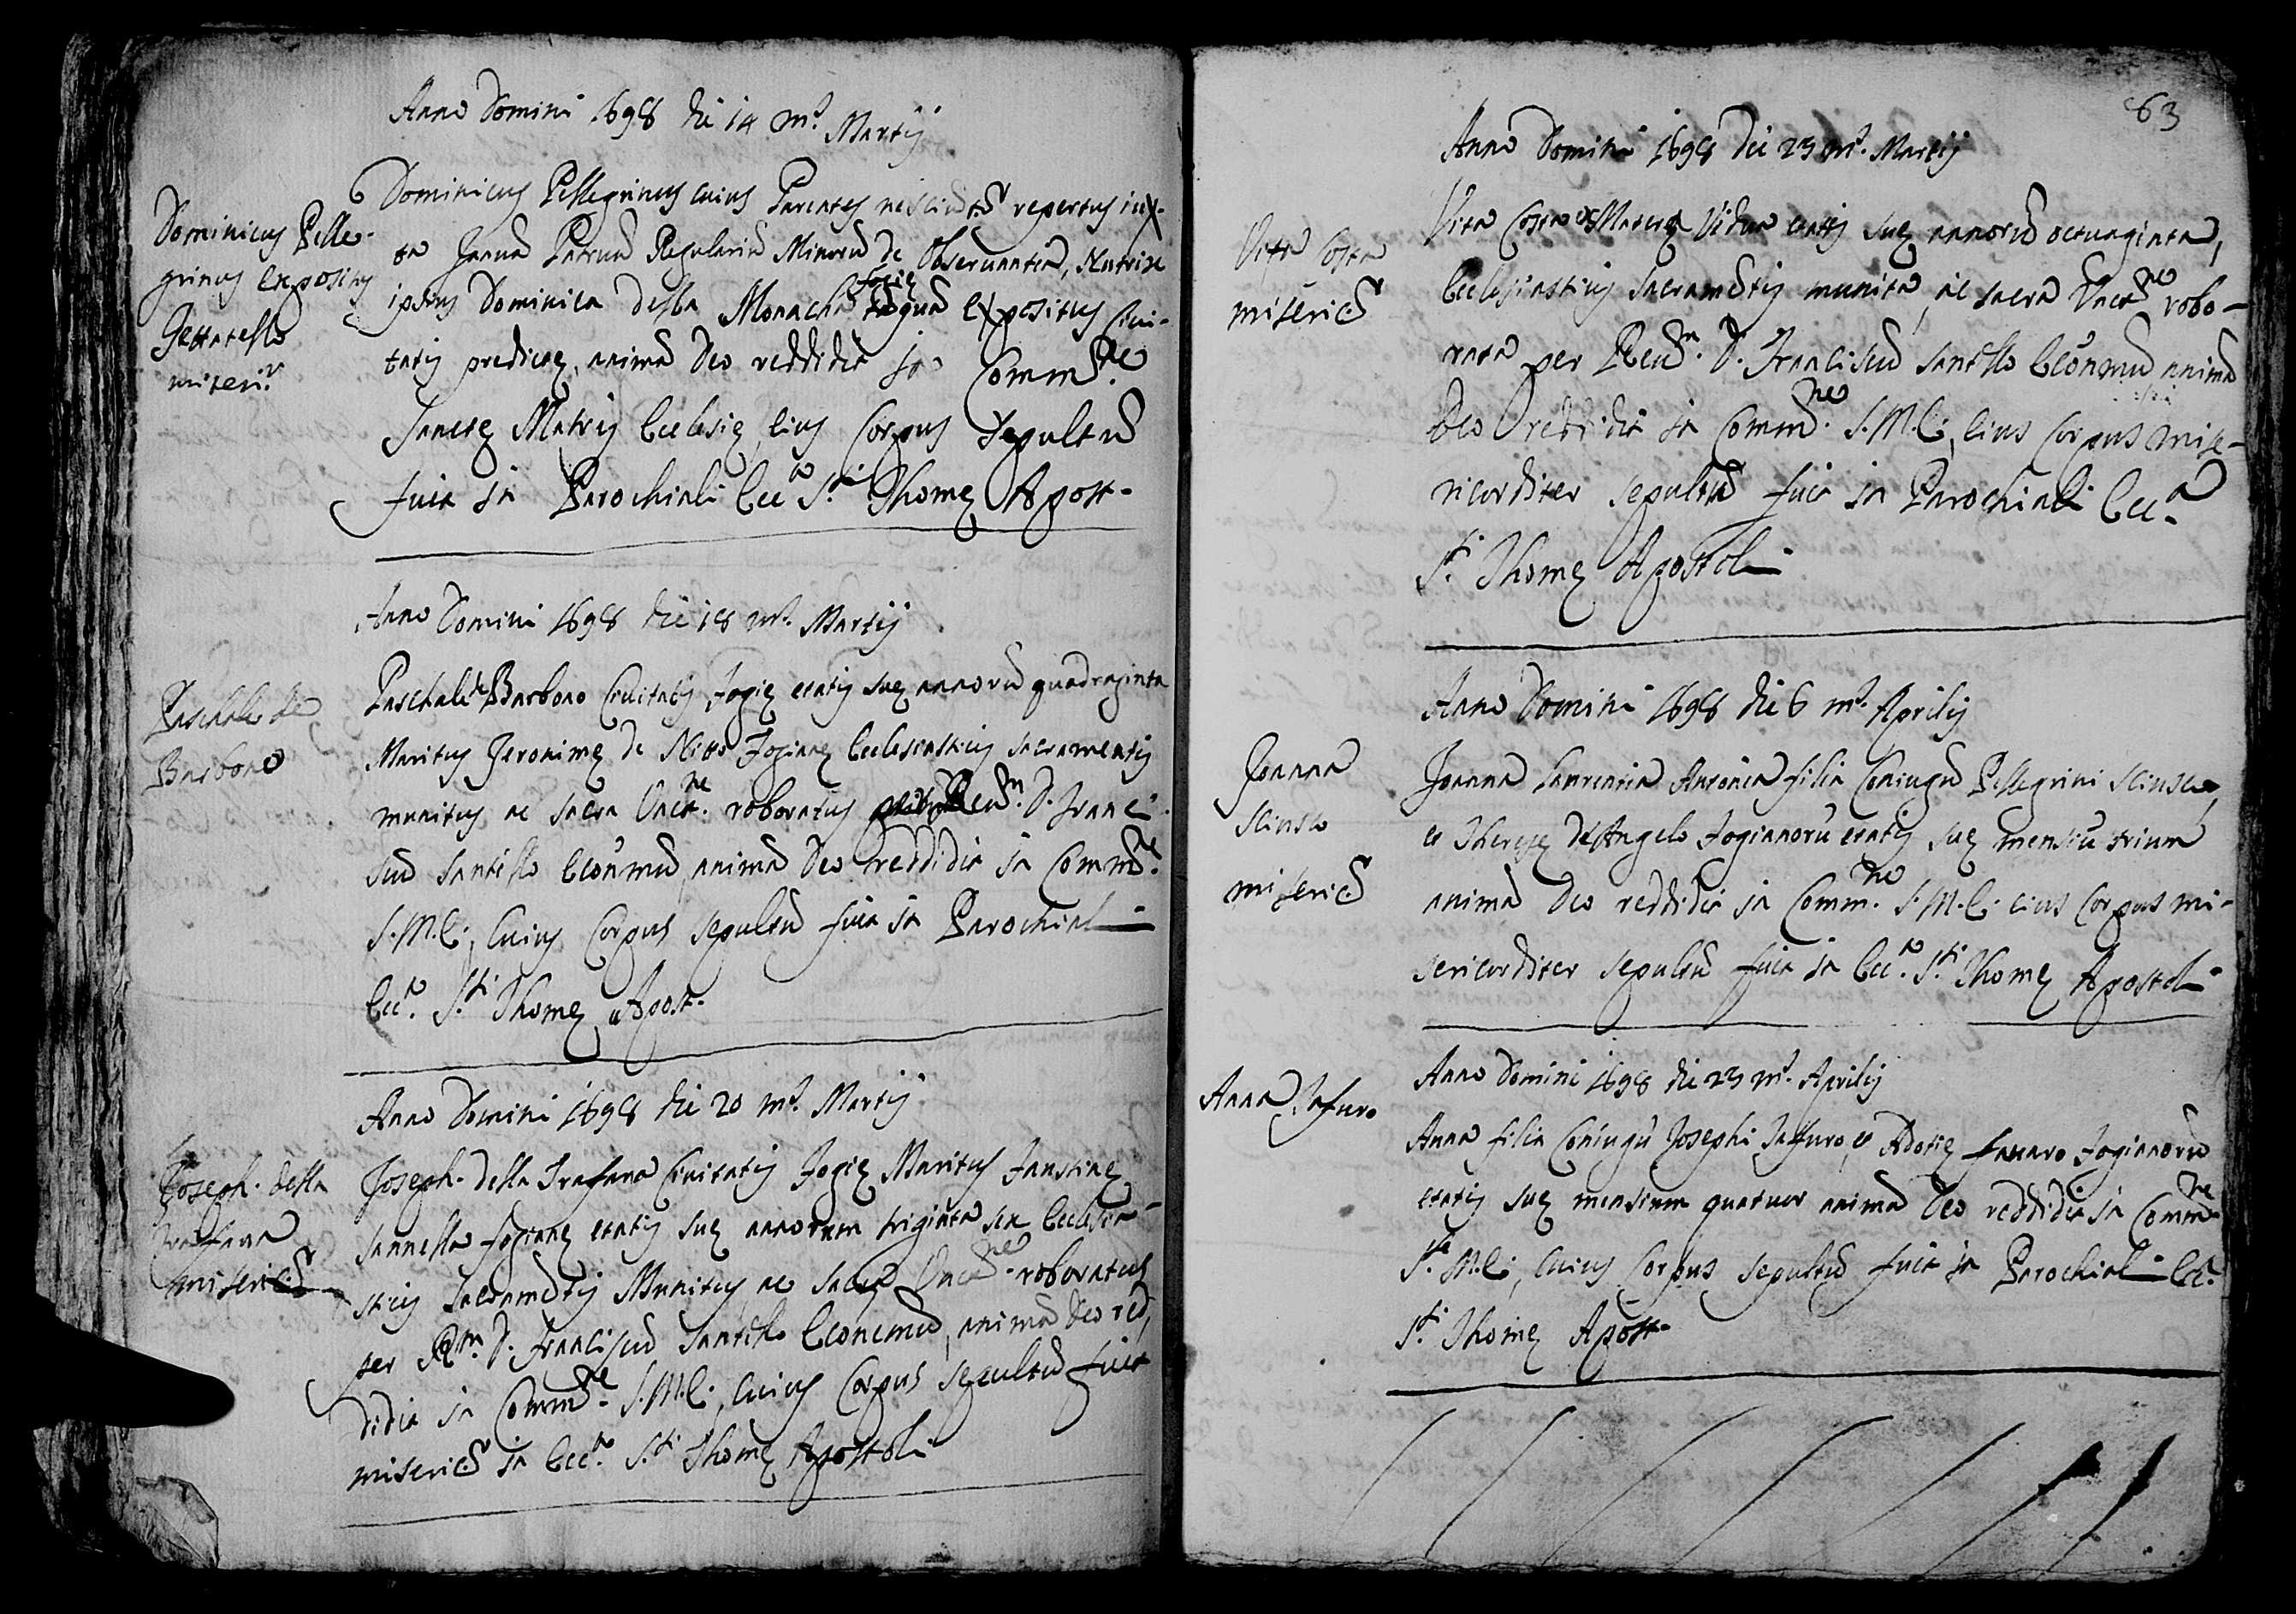 Anno Domini 1698 die 14 m.s Martij
Dominicus Pelle-
grinus expositus
Gettatello
miseri.r
Dominicus Pellegrinus cuius Parentes nesciunt.r repertus iux-
ta Januã Patruũ Regulariũ Minorũ de Observantia, Nutrix
ipsius Dominica della Monacha expositus Civi-
Fogie
tatis predicte, animã Deo reddidit in Comm.ne
Sancte Matris Ecclesie, eius Corpus Sepultũ
fuit in Parochiali Ecc.a S.ti Thome Apost.
Anno Domini 1698 die 18 m.s Martij
Paschale de
Barbono
Paschale de Barbono Civitatis Fogie etatis sue annorũ quadraginta
Maritus Jeronime de Nitto Fogiane Ecclesiasticis sacramentis
munitus ac sacra Unct.ne roboratus Reu.m D. Franci-
scũ Santello Econmũ, animã Deo reddidit in Comm.ne
S.M.E., cuius Corpus sepultũ fuit in Parochiali
Ecc.a S.ti Thome Apost.
Anno Domini 1698 die 20 m.s Martij
Joseph. della
Trafana
misericẽr
Joseph. della Trafana Civitatis Fogie Maritus Faustine
Sannella fogiane etatis sue annorum triginta sex Ecclesia-
sticis Sacramẽtis Munitus, ac sacra Unct.ne roboratus
per R.m D. Franciscũ Santello Economũ, animã Deo red,
didit in Comm.ne S.M.E., cuius Corpus sepultũ fuit
misericẽr in Ecc.a S.ti Thome Apostoli
63
Anno Domini 1698 die 23 m.s Martij
Vita Costa
misericẽr
Vita Costa Vidua etatis sue annorũ octuaginta,
Ecclesiasticis sacramẽtis munita, ac sacra Unct.ne robo-
rata per Reu.m D. Franciscũ Santello Econmũ animã
Deo reddidit in Comm.ne S.M.E., eius Corpus mise-
ricorditer sepultũ fuit in Parochiali Ecc.a
S.ti Thome Apostoli
Anno Domini 1698 die 6 m.s Aprilis
Joanna
Scinsco
misericẽr
Joanna Laurentia Antonia filia Coniugũ Pellegrini Scinsco,
et Therese de Angelo Fogianorũ etatis sue mensiũ trium
animã Deo reddidit in Comm.ne S.M.E. eius Corpus mi-
sericorditer sepultũ fuit in Ecc.a S.ti Thome Apostoli
Anno Domini 1698 die 23 m.s Aprilis
Anna Jafuro
Anna filia Coniugũ Josephi Jafuro, et Adotie Fogianorũ
etatis sue mensium quatuor animã Deo reddidit in Comm.ne
S.te M.E., cuius Corpus sepultũ fuit in Parochiali Ecc.a
S.ti Thome Apost.